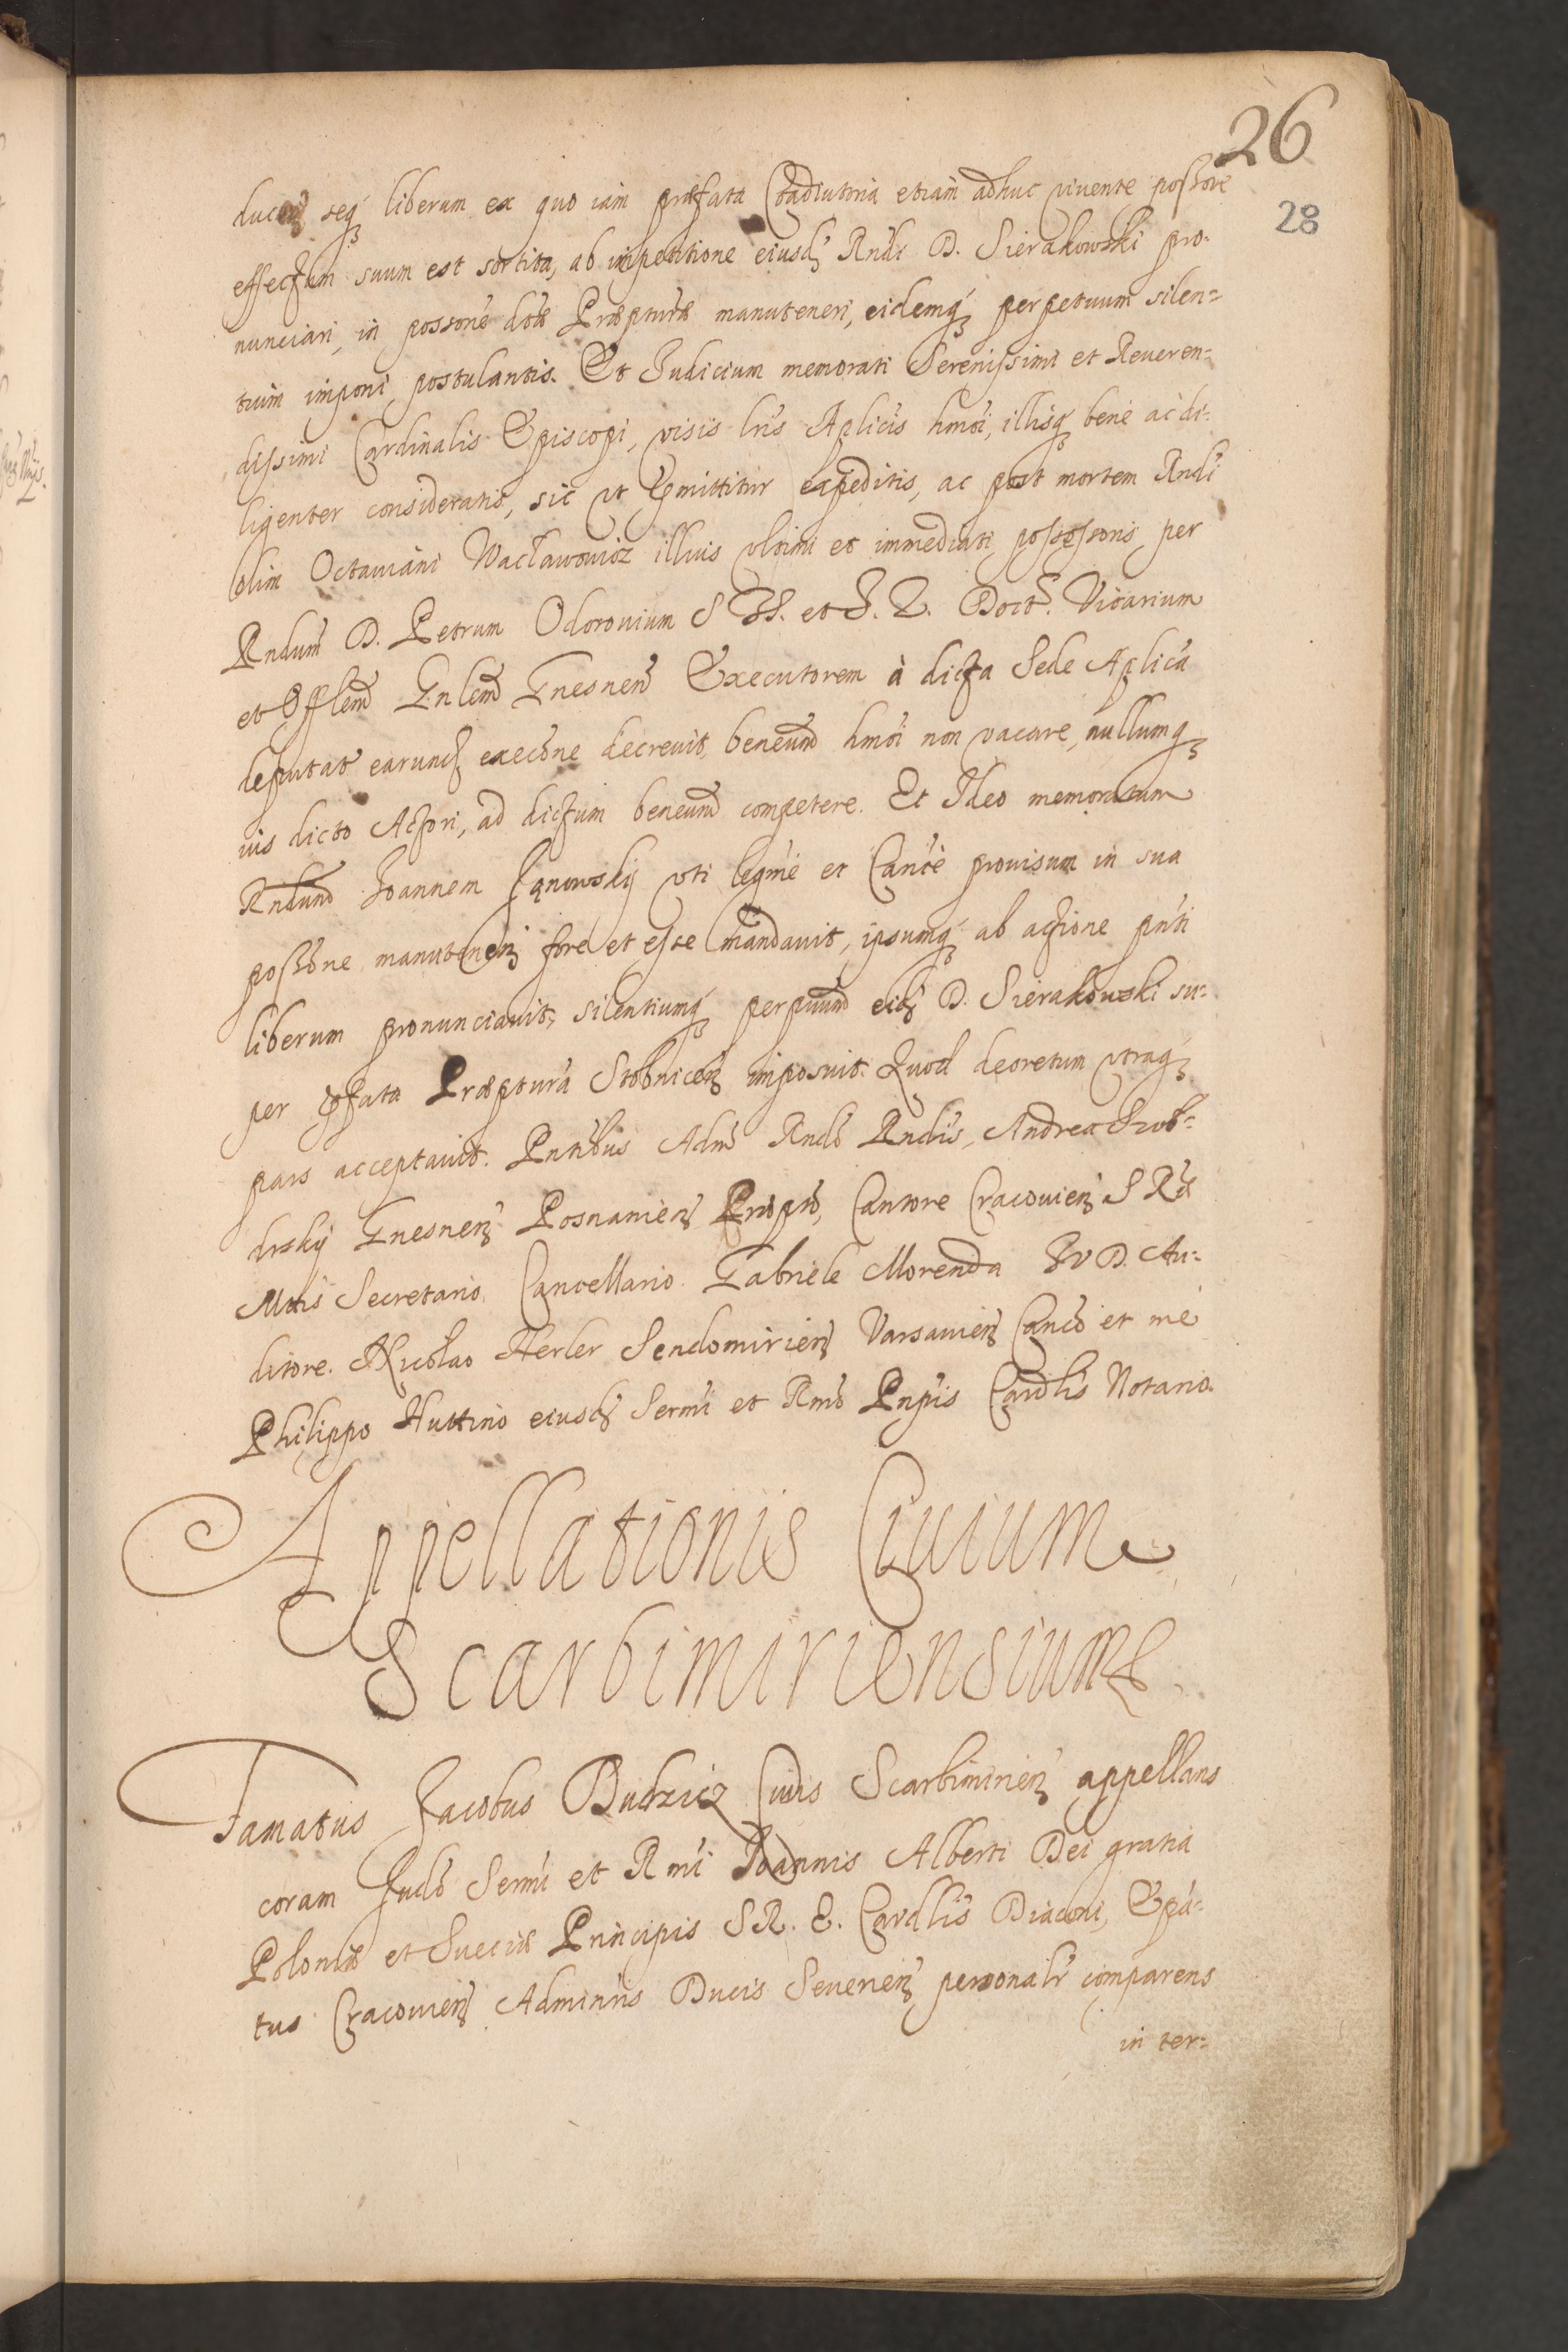 26
28
seq liberum ex quo iam præfata Coadiutoria etiam adhuc viuente possore
effectum suum est sortita, ab impetitione eiusd Rndi D. Sierakowski pro-
nunciari, in possone dctæ Præpturæ manuteneri, eidemq perpetuum silen-
tium imponi postulantis. Et Judicium memorati Serenissimi et Reueren-
dissimi Cardinalis Episcopi, visis lris Aplicis hmoi, illisq bene ac di-
ligenter consideratis, sic vt præmittitur expeditis, ac post mortem Rndi
olim Octauiani Wacławowicz illius vltimi et immediati possessoris per
Rndum D. Petrum Odorouium S Th. et J. V. Doct. Vicarium
et Offlem Gnlem Gnesnen Executorem à dicta Sede Aplica
deputat earund execone decreuit, beneum hmoi non vacare, nullumq
ius dicto Actori, ad dictum beneum competere. Et Ideo memoratum
Rndum Joannem Janowskÿ vti legme et Cance prouisum in sua
possone manutenen fore et esse mandauit, ipsumq ab actione pnti
liberum pronunciauit, silentiumq perpuum eid D. Sierakowski su-
per præfata Præptura Stobnicen imposuit. Quod decretum vtraq
pars acceptauit. Pntibus Adm Rndo Rndis, Andrea Szob-
drskÿ Gnesnen Posnanien Præpto, Cantore Cracouien S Ræ
Mttis Secretario Cancellario. Gabriele Morenda JVD. Au-
ditore. Nicolao Herler Sendomirien Varsauien Canco et me
Philippo Huttino eiusd Sermi et Rmi Pnpis Cardlis Notario.
Appellationis Ciuium
Scarbimiriensium
Famatus Jacobus Budzicz Ciuis Scarbimirien appellans
coram Judo Sermi et Rmi Joannis Alberti Dei gratia
Poloniæ et Sueciæ Principis S R. E. Cardlis Diaconi, Epa-
tus Cracouien Adminris Ducis Seuerien personalr comparens
in ter-